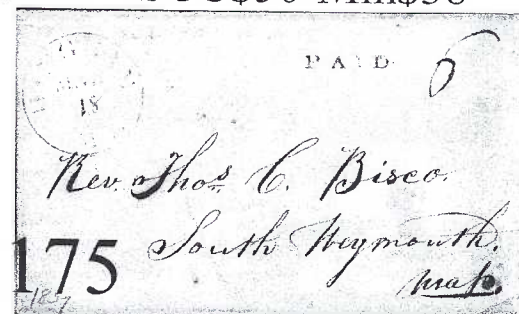 PAID 6
18
Rev. Thos. C. Bisco.
South Weymouth.
Mass.
175
1857